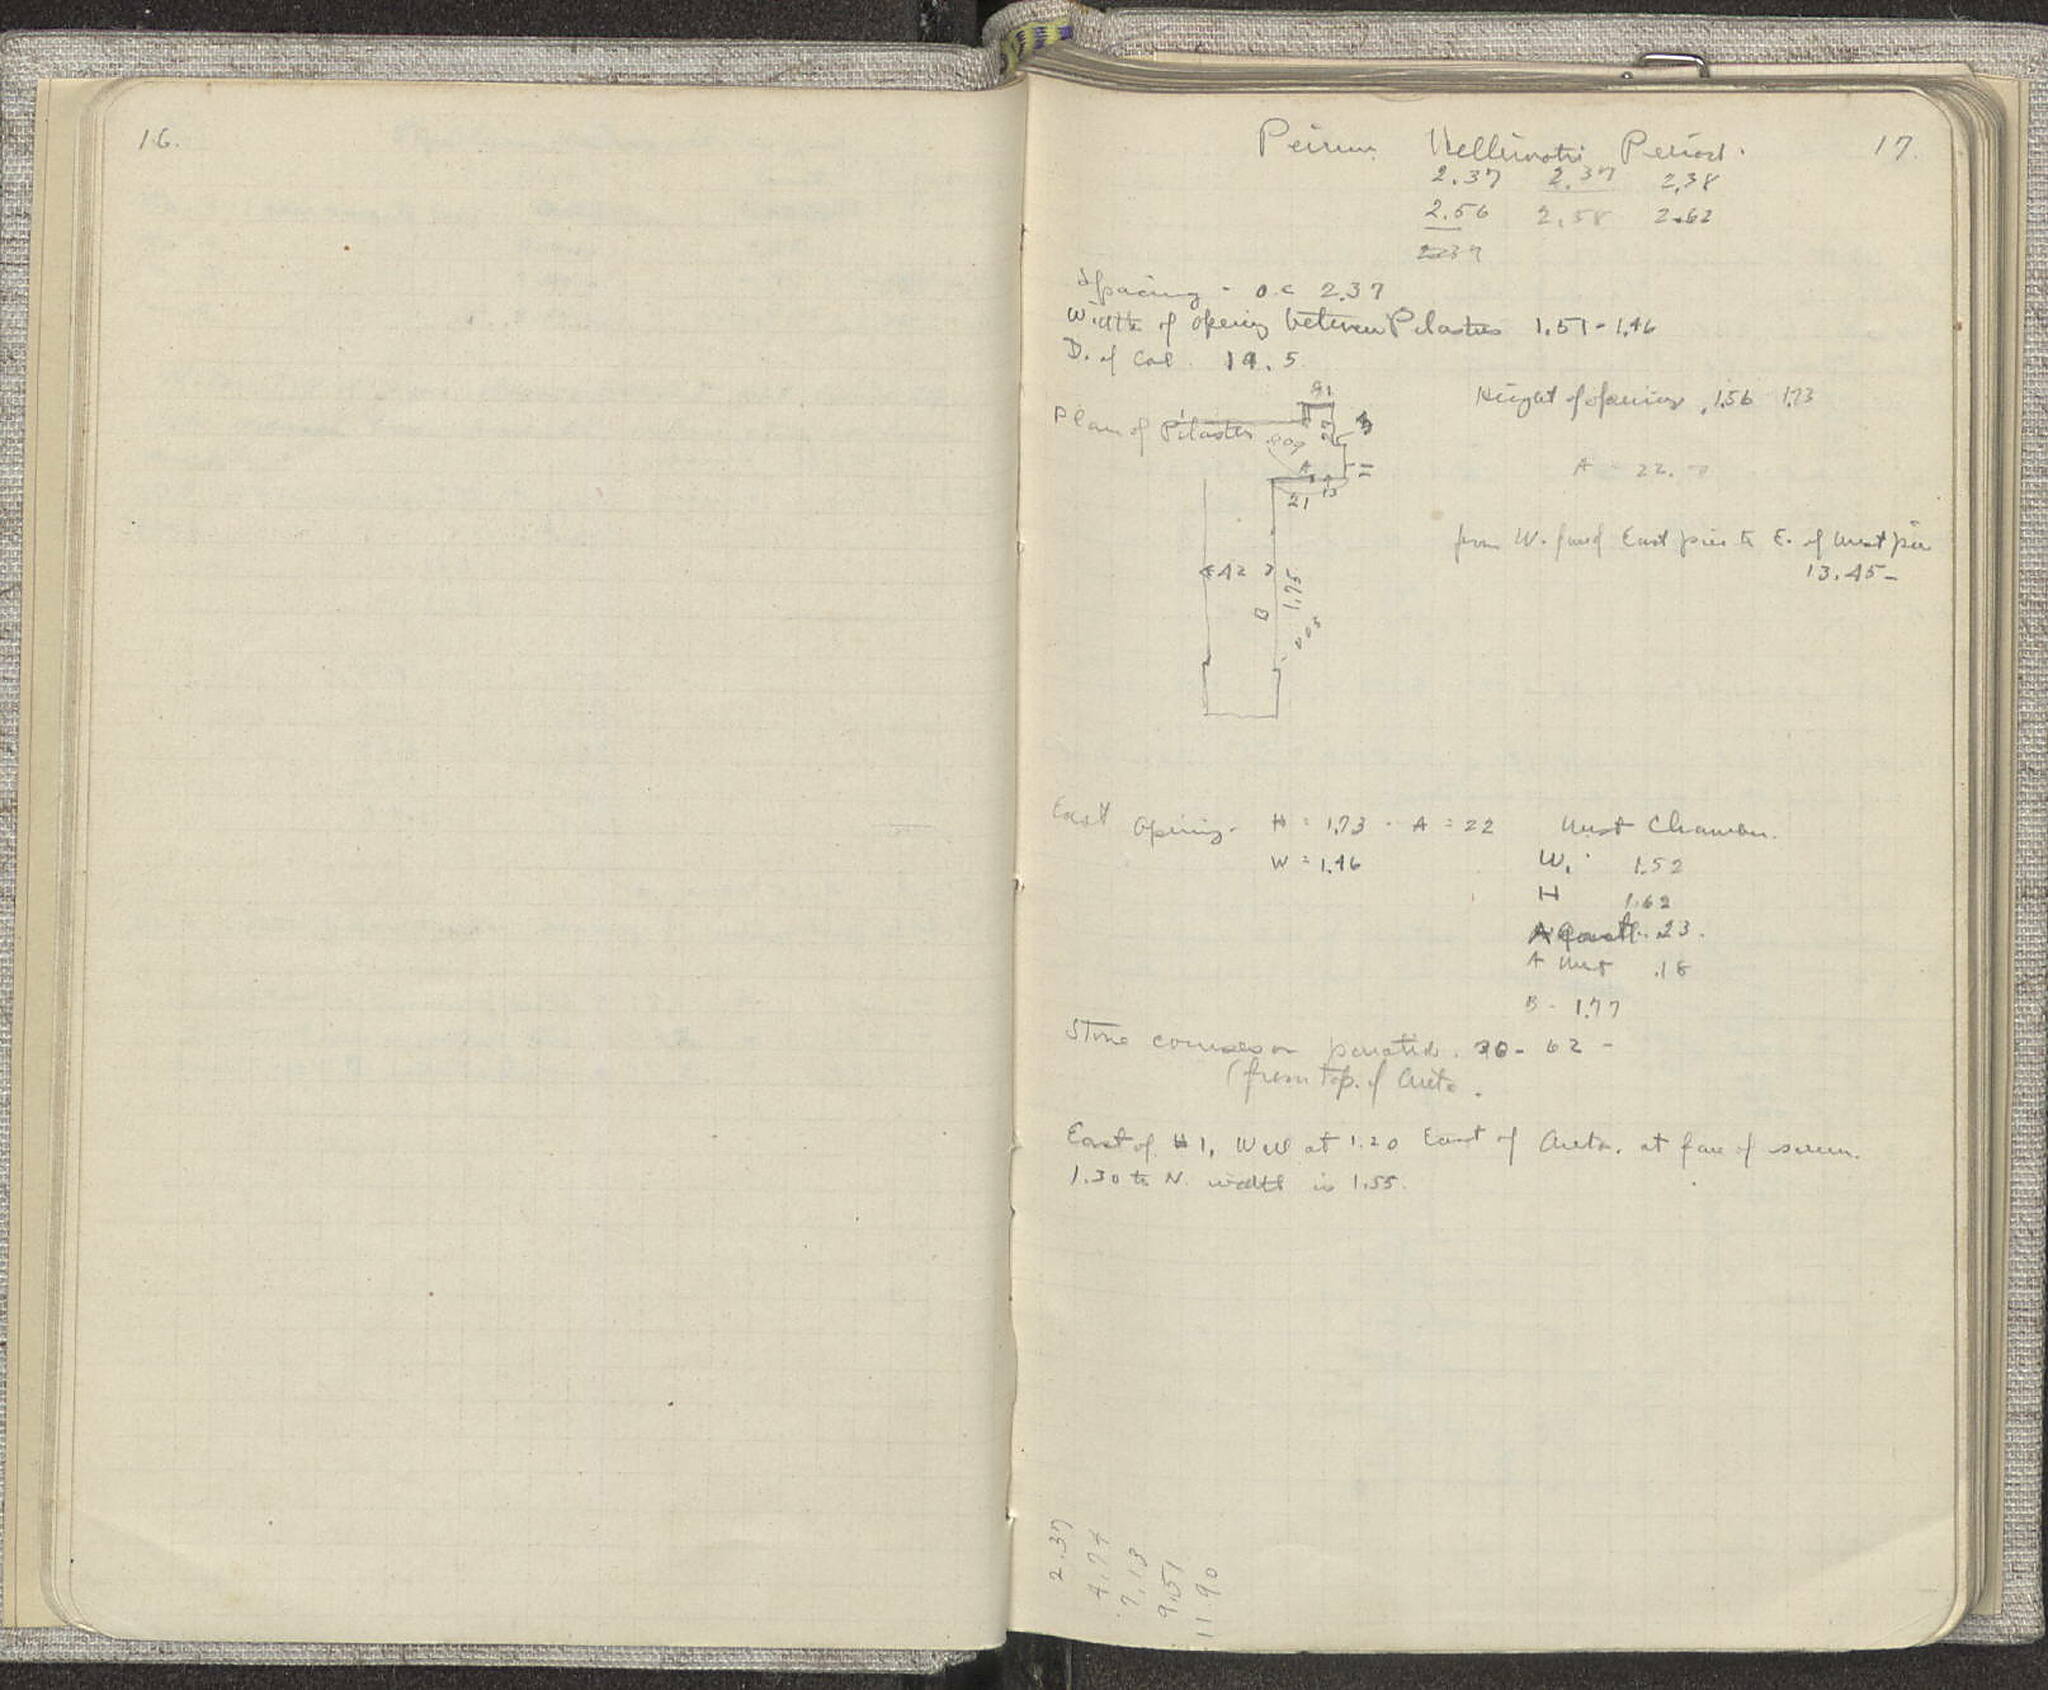 16.
17.
Peirene Hellenistic Period.
2.37 2.37 2.38
2.56 2.58 2.62
2.37
Spacing - o.c 2.37
Width of opening between Pilasters 1.51 - 1.46
D. of Col. 19.5
Height of opening, 1.56 1.73
Plan of Pilaster
A 22.
A
21 13
from W. face of East pier to E. of West pier
13.45 -
42
B 1.75
East Opening - H = 1.73 - A = 22
W = 1.46
West Chamber.
W. 1.52
H 1.62
A East .23.
A West .18
B - 1.77
Stone courses on 30 - 62 -
(from top. of Anta.
East of #1, Wall at 1.20 East of Anta. at face of screen.
1.30 to N. width is 1.55.
2.37
4.74
7.13
9.51
11.90